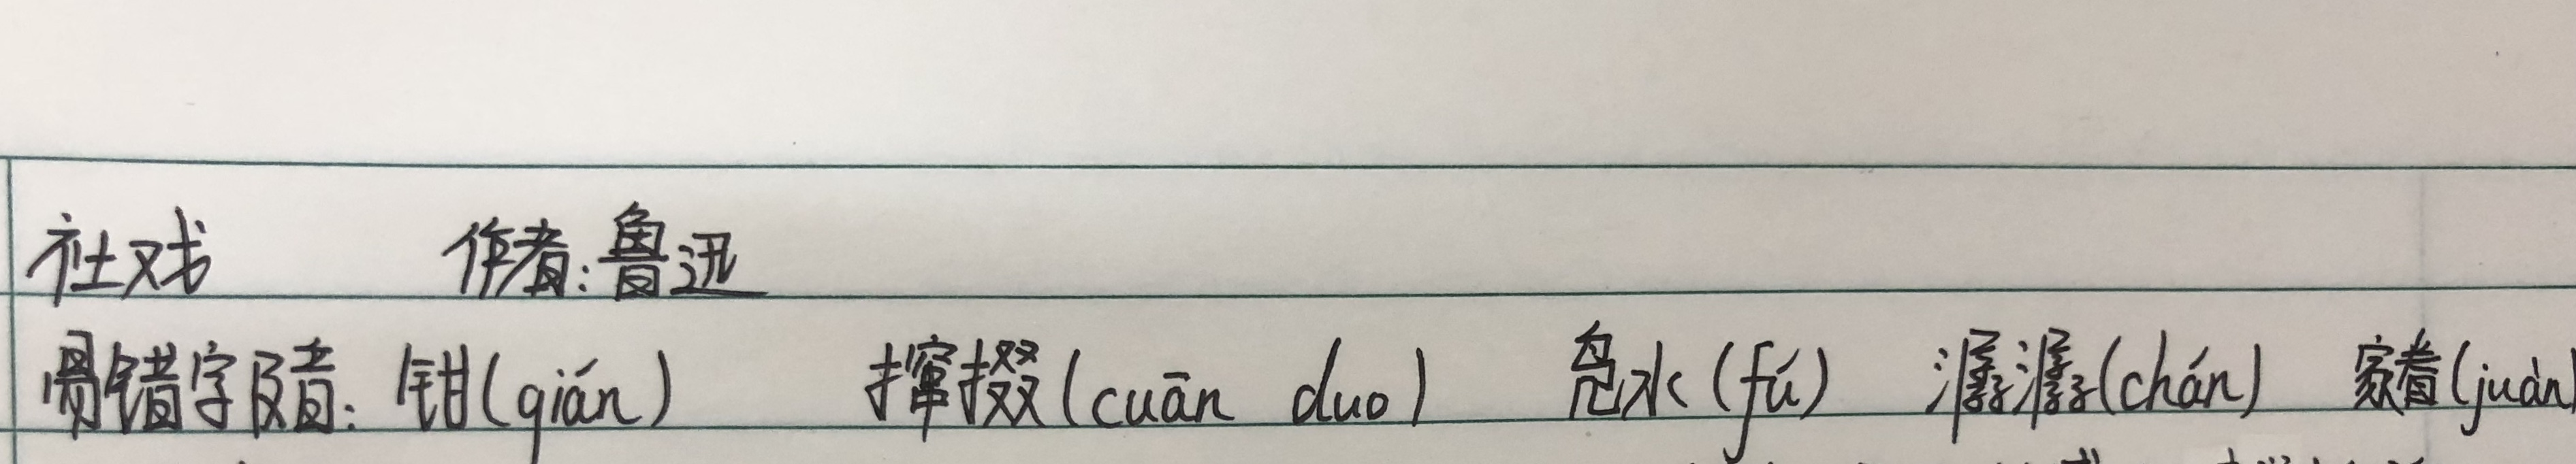 社戏 作者:鲁迅
易错字及音: 钳(qián) 撺掇(cuān duo) 凫水(fú) 潺潺(chán) 家眷(juàn)